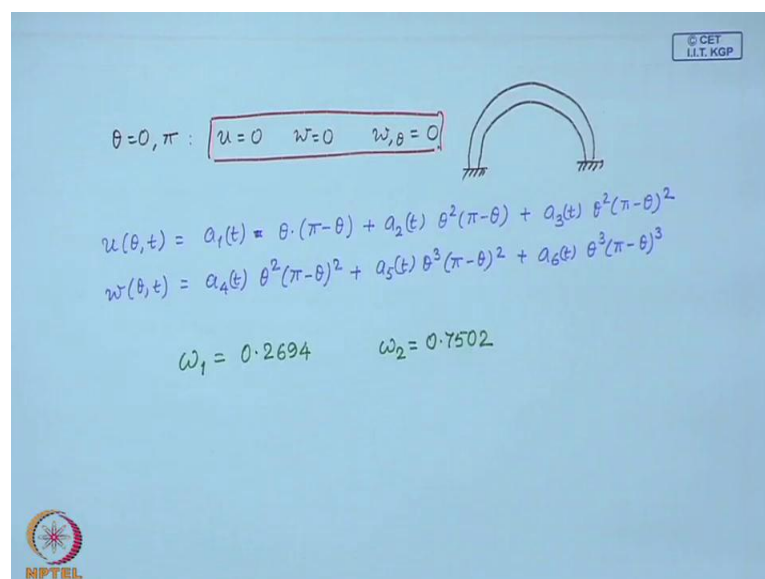 © CET
I.I.T. KGP
θ=0, π : u=0 w=0 w,θ=0
u(θ,t) = a₁(t) θ·(π−θ) + a₂(t) θ²(π−θ) + a₃(t) θ²(π−θ)²
w(θ,t) = a₄(t) θ²(π−θ)² + a₅(t) θ³(π−θ)² + a₆(t) θ³(π−θ)³
ω₁ = 0.2694 ω₂ = 0.7502
NPTEL